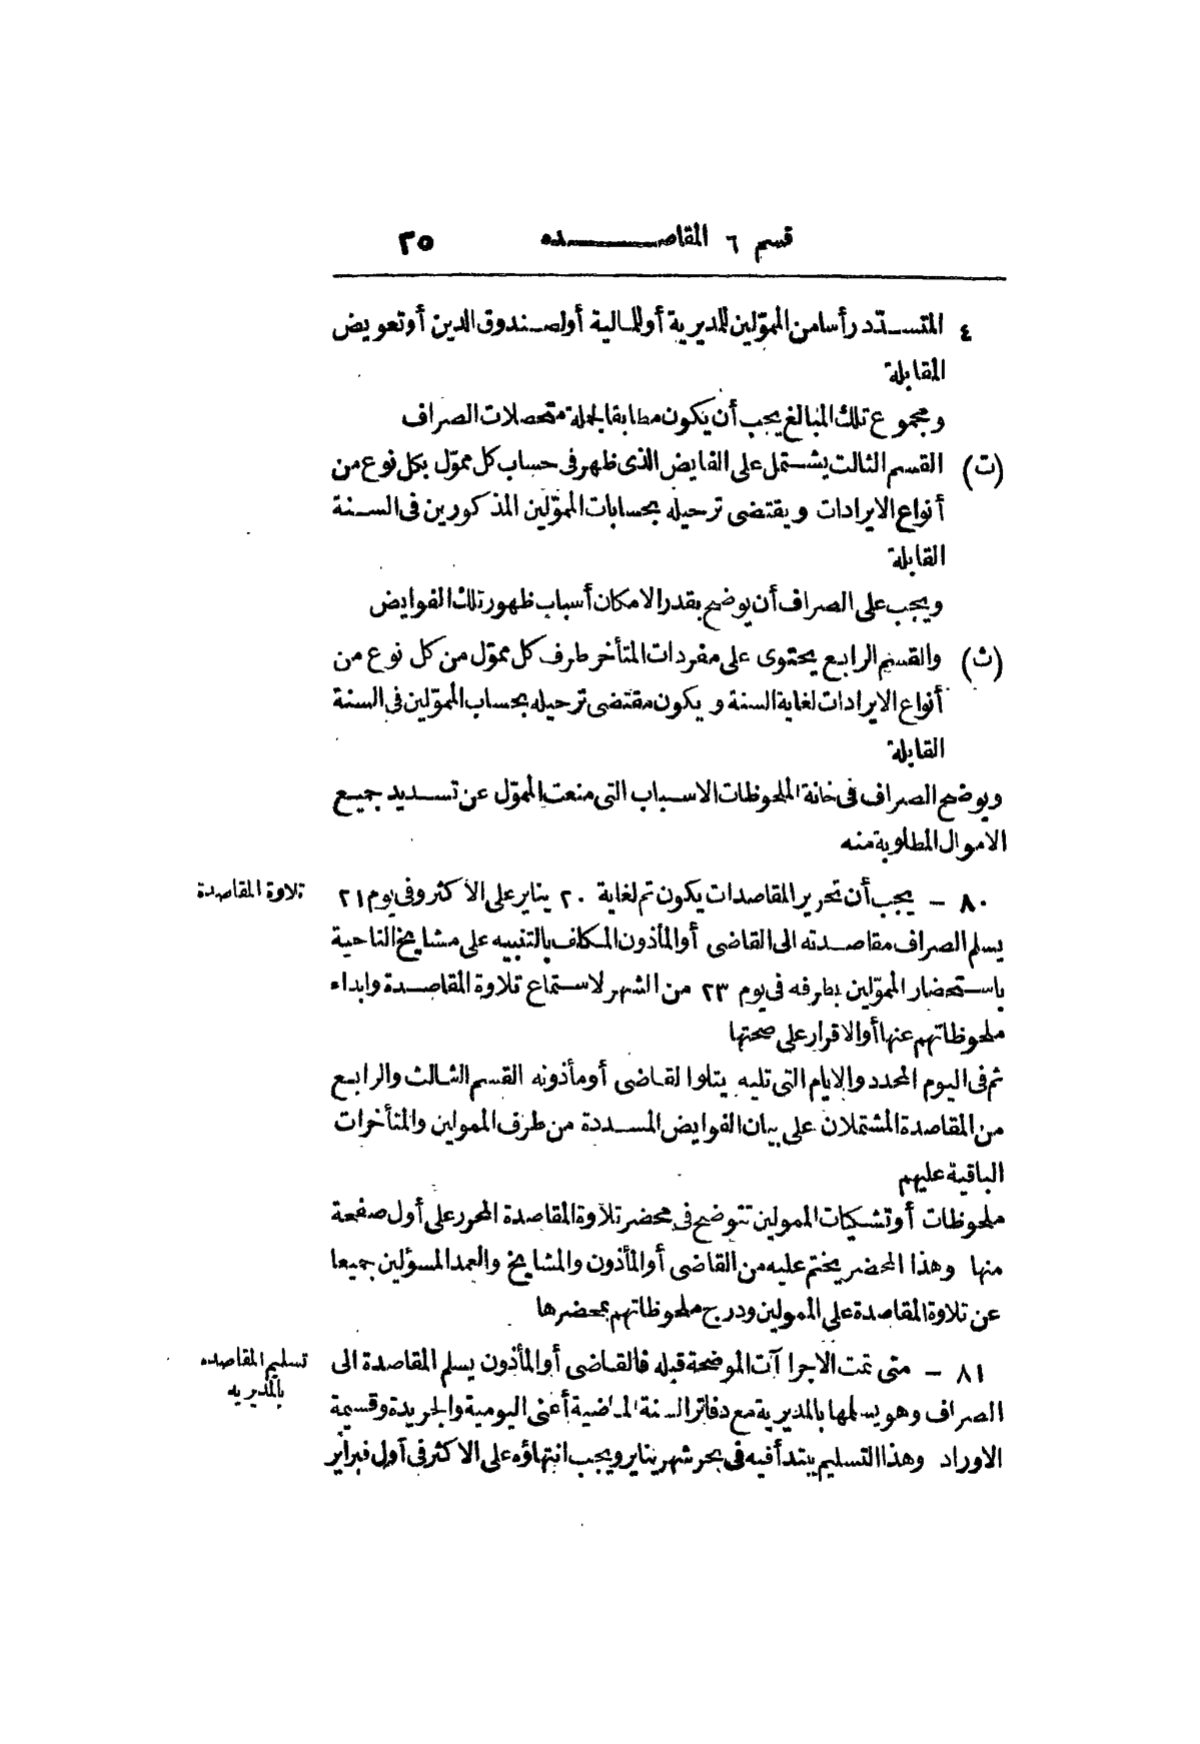 قسم ٦ المقاصـــــــده ٢٥
٤ المتسـدّد رأسا من المموّلين للمديرية أو للمالية أو لصندوق الدين أو تعويض
المقابلة
ومجموع تلك المبالغ يجب أن يكون مطابقا لجملة متحصلات الصراف
(ت) القسم الثالث يشتمل على الفايض الذى ظهر فى حساب كل مموّل بكل نوع من
أنواع الايرادات ويقتضى ترحيله بحسابات المموّلين المذكورين فى السنة
القابلة
ويجب على الصراف أن يوضح بقدر الامكان أسباب ظهور تلك الفوايض
(ث) والقسم الرابع يحتوى على مفردات المتأخر طرف كل مموّل من كل نوع من
أنواع الايرادات لغاية السنة ويكون مقتضى ترحيله بحساب المموّلين فى السنة
القابلة
ويوضح الصراف فى خانة الملحوظات الاسباب التى منعت المموّل عن تسديد جميع
الاموال المطلوبة منه
٨٠ – يجب أن تحرير المقاصدات يكون تم لغاية ٢٠ يناير على الأكثر وفى يوم ٢١
تلاوة المقاصدة
يسلم الصراف مقاصدته الى القاضى أو المأذون المكلف بالتنبيه على مشايخ الناحية
باستحضار المموّلين بطرفه فى يوم ٢٣ من الشهر لاستماع تلاوة المقاصدة وابداء
ملحوظاتهم عنها أو الاقرار على صحتها
ثم فى اليوم المحدد والايام التى تليه يتلوا لقاضى أو مأذونه القسم الثالث والرابع
من المقاصدة المشتملان على بيان الفوايض المسددة من طرف الممولين والمتأخرات
الباقية عليهم
ملحوظات أو تشكيات الممولين تتوضح فى محضر تلاوة المقاصدة المحرر على أول صفحة
منها وهذا المحضر يختم عليه من القاضى أو المأذون والمشايخ والعمد المسؤلين جميعا
عن تلاوة المقاصدة على الممولين ودرج ملحوظاتهم بمحضرها
٨١ – متى تمت الاجراآت الموضحة قبله فالقاضى أو المأذون يسلم المقاصدة الى
تسليم المقاصده
بالمديريه
الصراف وهو يسلمها بالمديرية مع دفاتر السنة الماضية أعنى اليومية والجريدة وقسيمة
الاوراد وهذا التسليم يبتدأ فيه فى بحر شهر يناير ويجب انتهاؤه على الاكثر فى أول فبراير